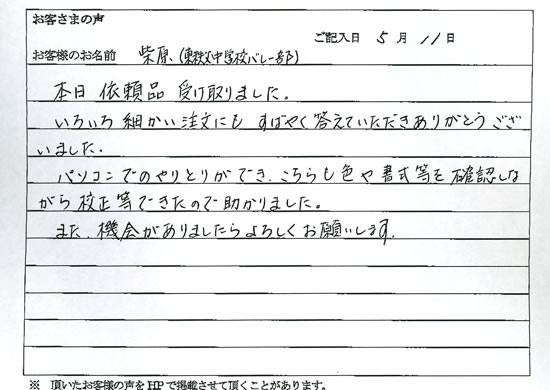 お客さまの声
ご記入日 5 月 11 日
お客様のお名前 柴原(東秩父中学校バレー部)
本日 依頼品 受け取りました。
いろいろ細かい注文にも すばやく答えていただきありがとうござ
いました。
パソコンでのやりとりができ、こちらも色や書式等を確認しな
がら校正等できたので助かりました。
また、機会がありましたらよろしくお願いします。
※ 頂いたお客様の声をHPで掲載させて頂くことがあります。